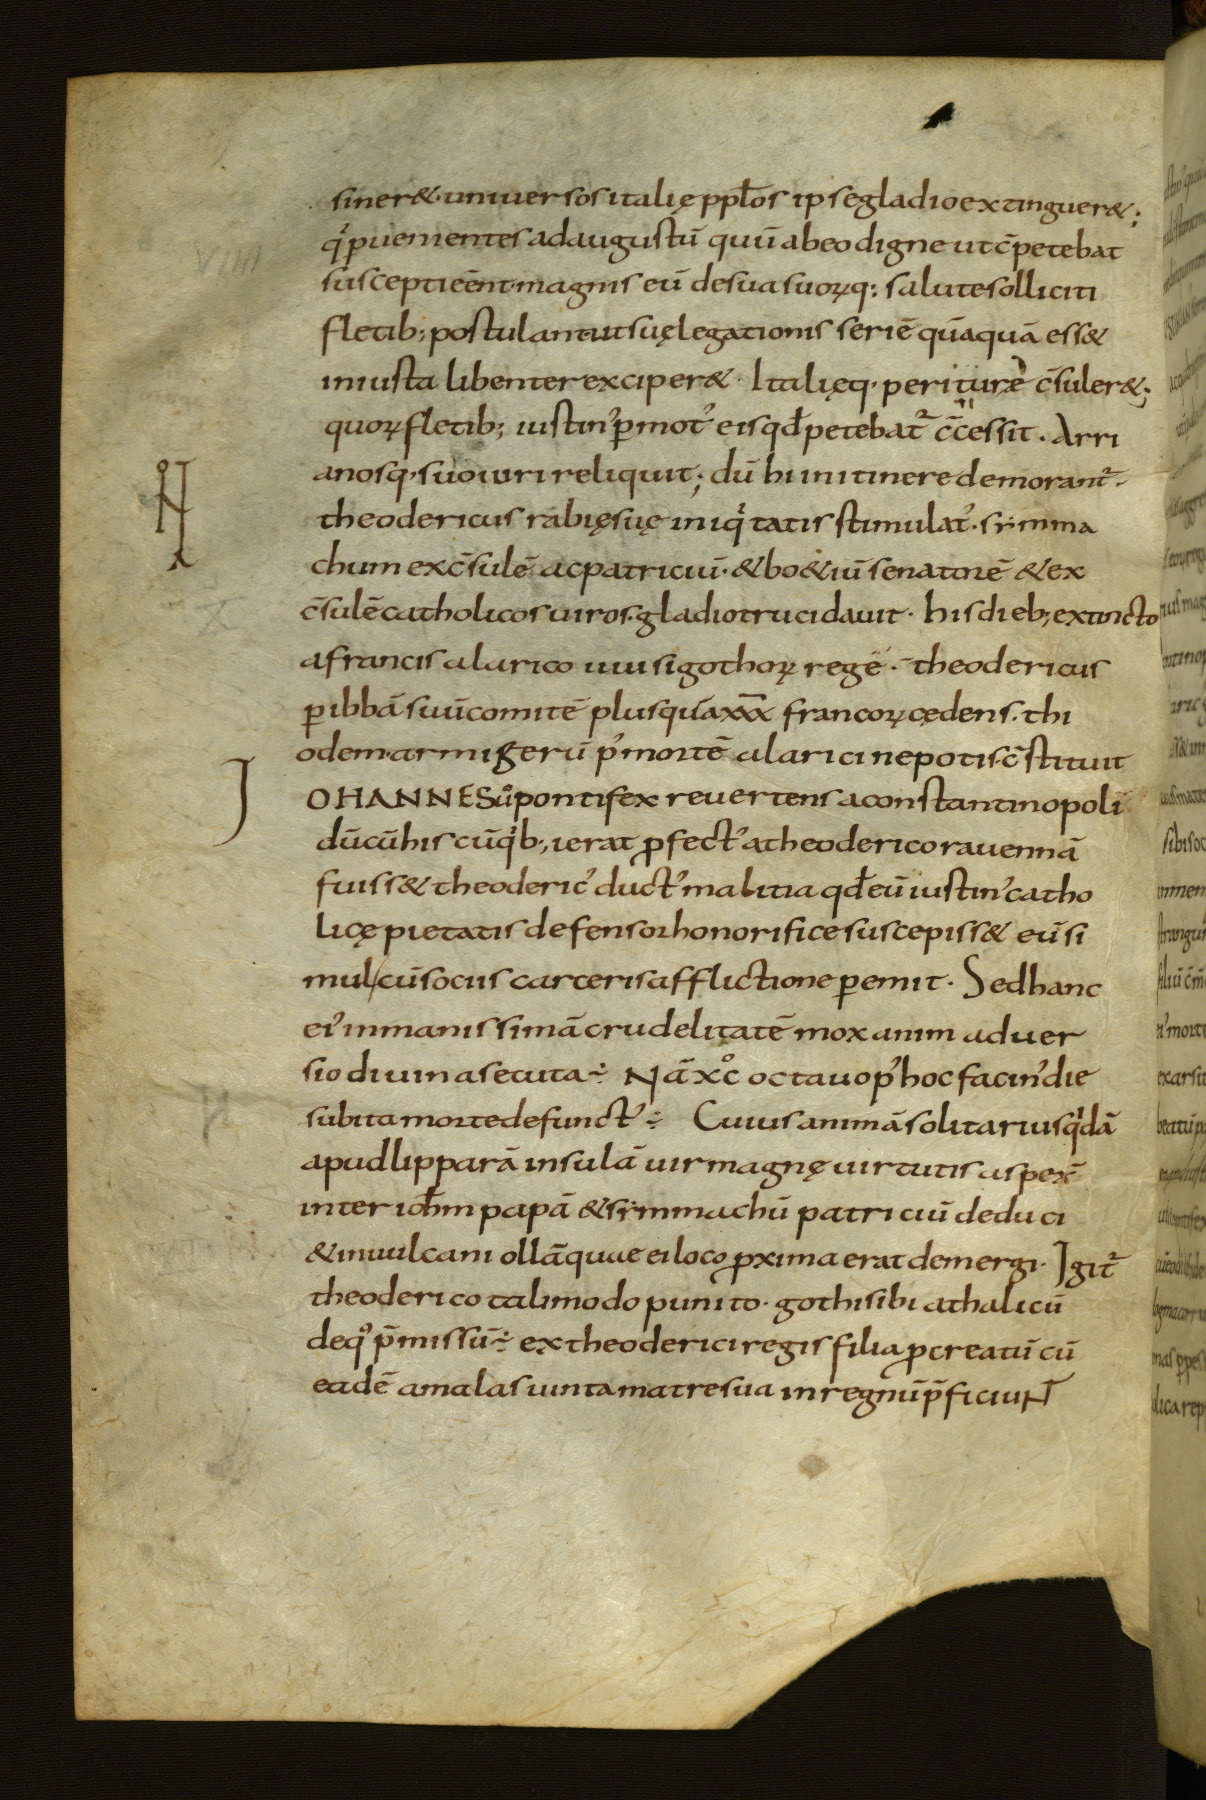 siner&· uniuersos italię ppłos ipse gladio extinguer&;
qͥ puenientes ad augustū quū ab eo digne ut c̄petebat
suscepti eēnt· magnis eū de sua suorꝝq: salute solliciti
fletib; postulant ut suę legationis seriē quāquā ess&
iniusta libenter exciper&· Italięq· periturę c̄suler&;
quorꝝ fletib; iustin᾽ ꝑmot᾽ eis qđ petebat᷑ c̄cessit. Arri
anosq· suo iuri reliquit; dū hi in itinere demorant᷑·
theodericus rabię suę iniqͥtatis stimulat᾽· simma
chum exc̄sulē ac patriciū· & bo&iū senatorē & ex
c̄sulē catholicos uiros· gladio trucidauit· his dieb; extincto
a francis alarico uuisigothorꝝ rege· theodericus
ꝑ ibbā suū comitē plusquā xxx francorꝝ cędens· thi
odem· armigerū p᾽ mortē alarici nepotis c̄stituit
IOHANNES uͦ pontifex reuertens a constantinopoli
dū cū his cū qͥb; ierat ꝓfect᾽ a theoderico rauennā
fuiss& theoderic᾽ duct᾽ malitia qđ eū iustin᾽ catho
licę pietatis defensor honorifice suscepiss& eū si
mul/cū sociis carceris afflictione ꝑemit· Sed hanc
ei᾽ inmanissimā crudelitatē mox animaduer
sio diuina secuta ÷ Nā xcͦ octauo p᾽ hoc facin᾽ die
subita morte defunct᾽ ÷ Cuius animā solitarius qͥdā
apud lipparā insulā uir magnę uirtutis aspex̄
inter ioħm papā & simmachū patriciū deduci
& in uulcani ollā quae ei loco ꝓxima erat demergi· Igit᷑
theoderico tali modo punito· gothi sibi athalicū
de qͦ p̄missū ÷ ex theoderici regis filia ꝓcreatū cū
eadē amalasuinta matre sua in regnū p̄ficiunt